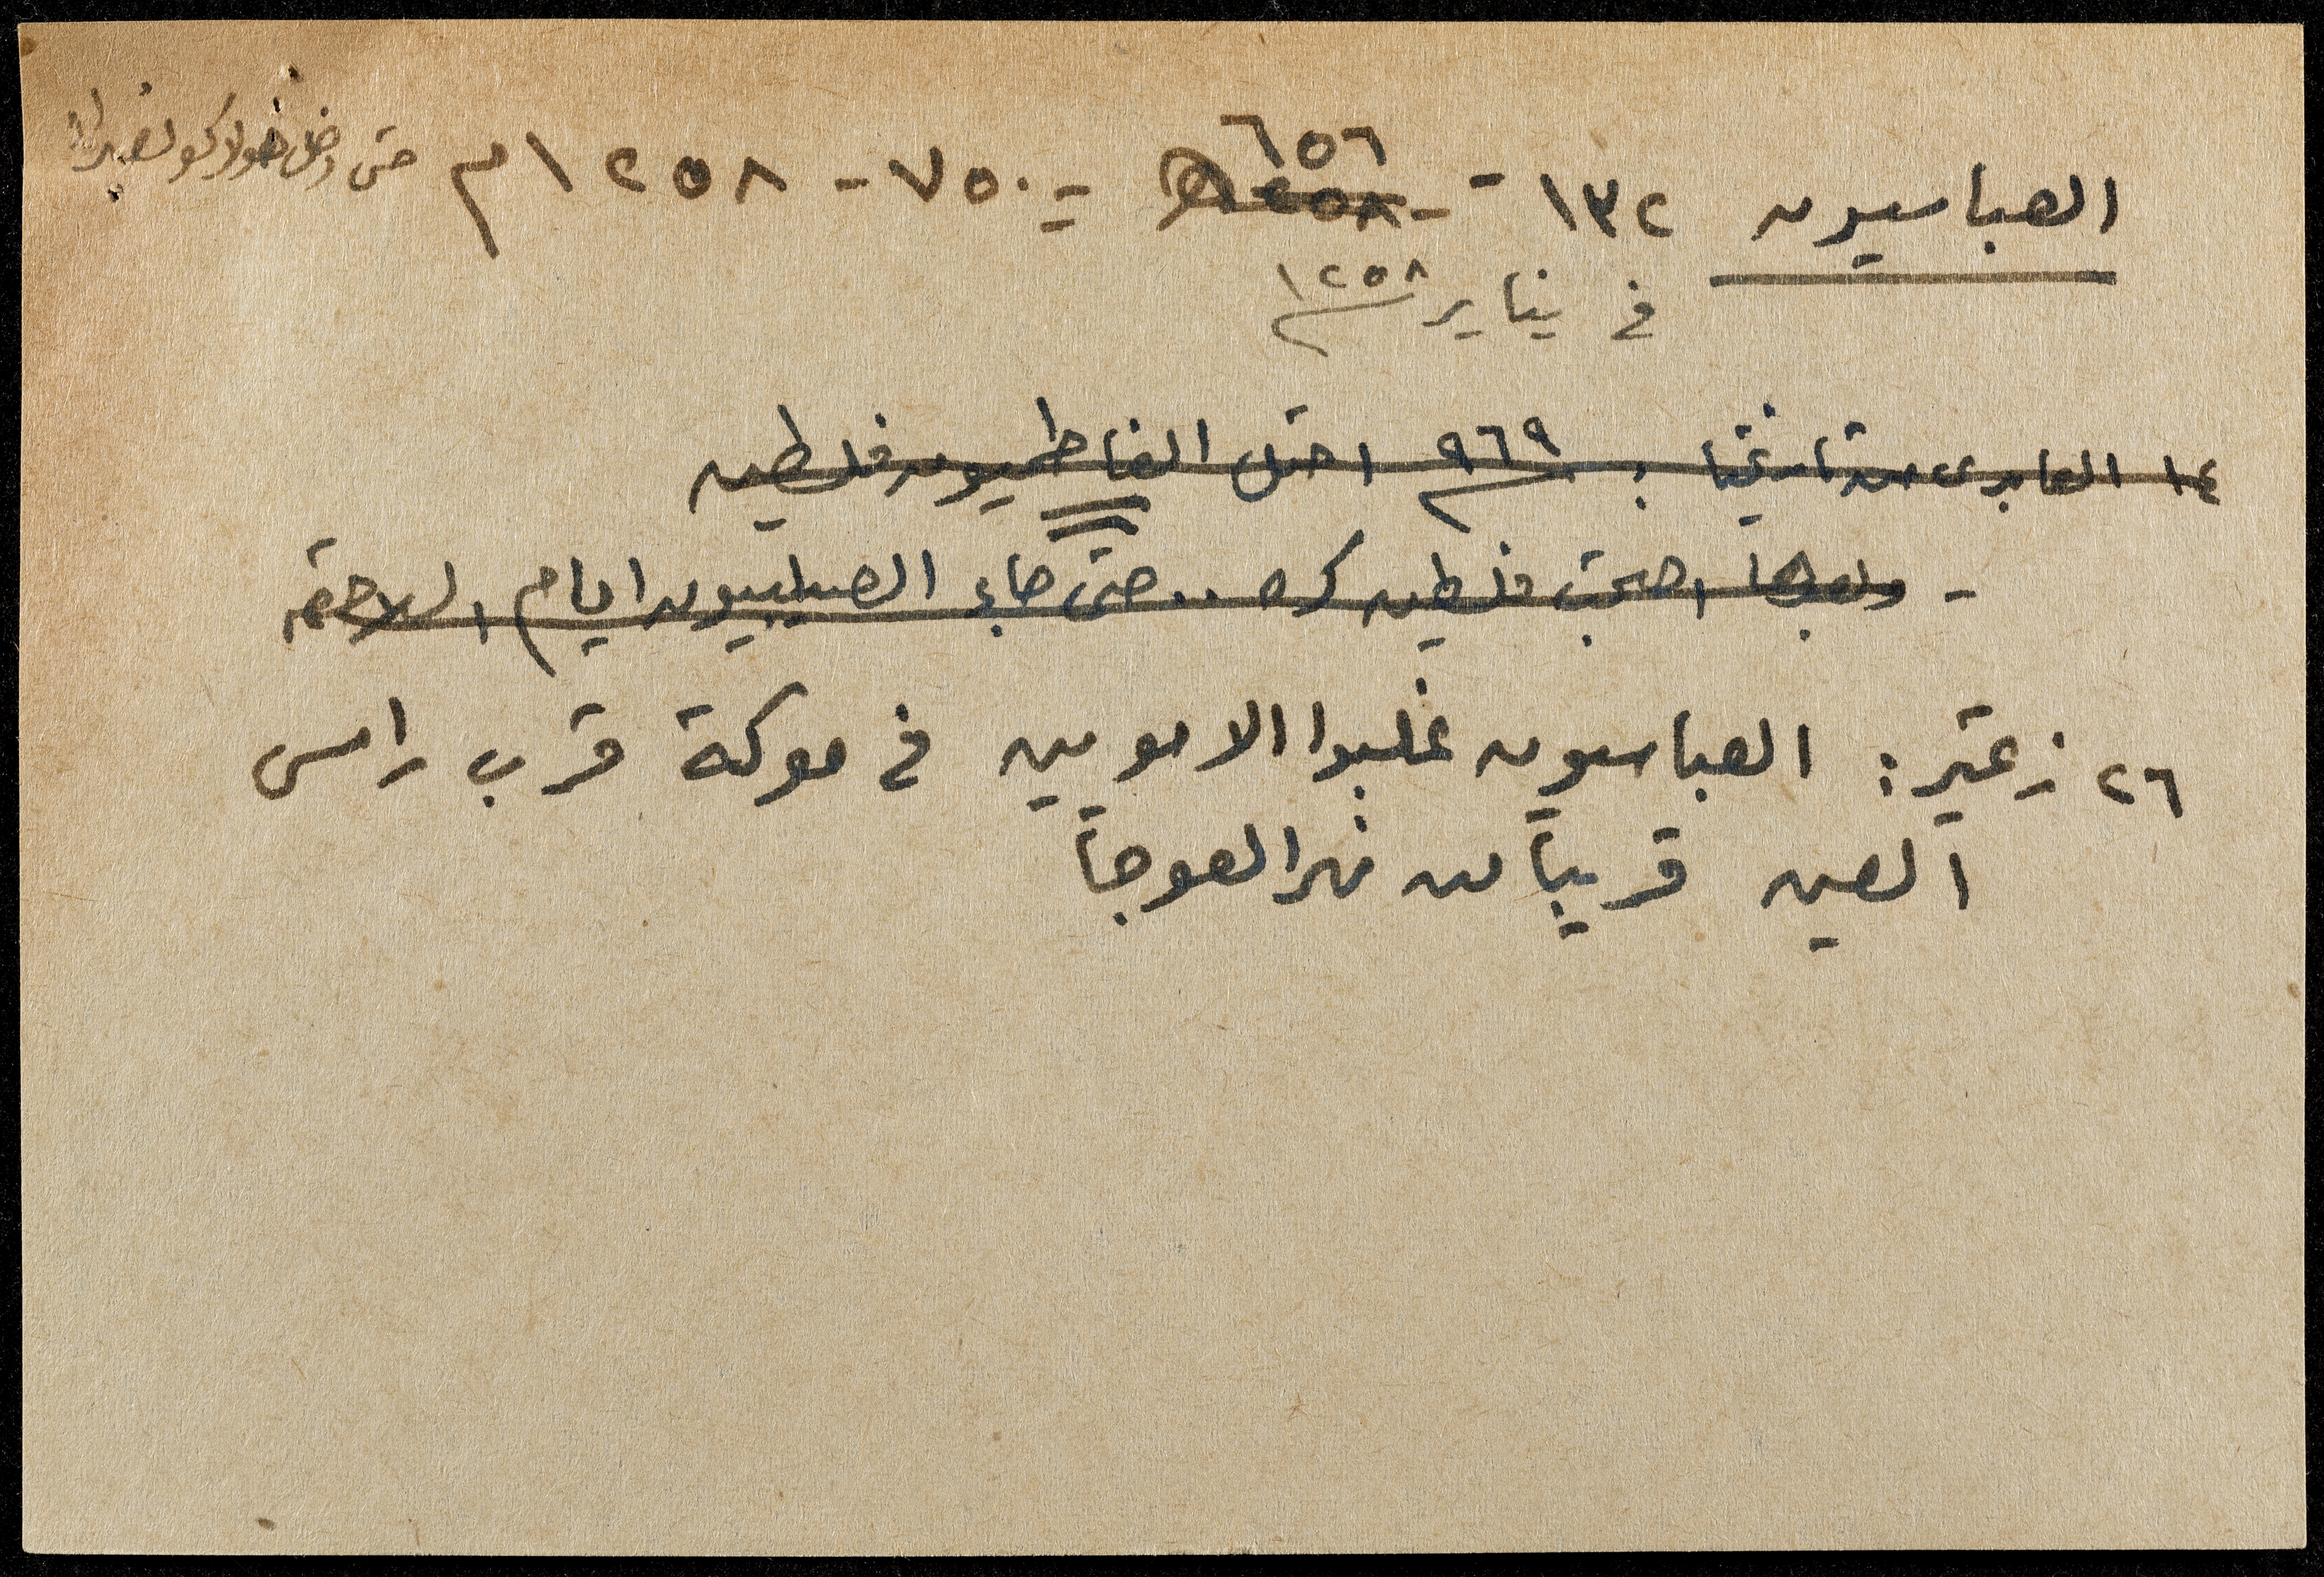 العباسيون ١٣٢ - ٦٥٦ = ٧٥٠ - ١٢٥٨م حتى دخل هولاكو بغداد
في يناير ١٢٥٨
١٤ العابدي من تاريخنا : ٩٦٩ احتل الفاطميون فلسطين
- وبعدها اصبحت فلسطين كره .. حتى جاء الصليبيون ايام السلاجقه
٢٦ زعيتر : العباسيون غلبوا الامويين في معركة قرب راس
العين قريباً من نهر العوجا